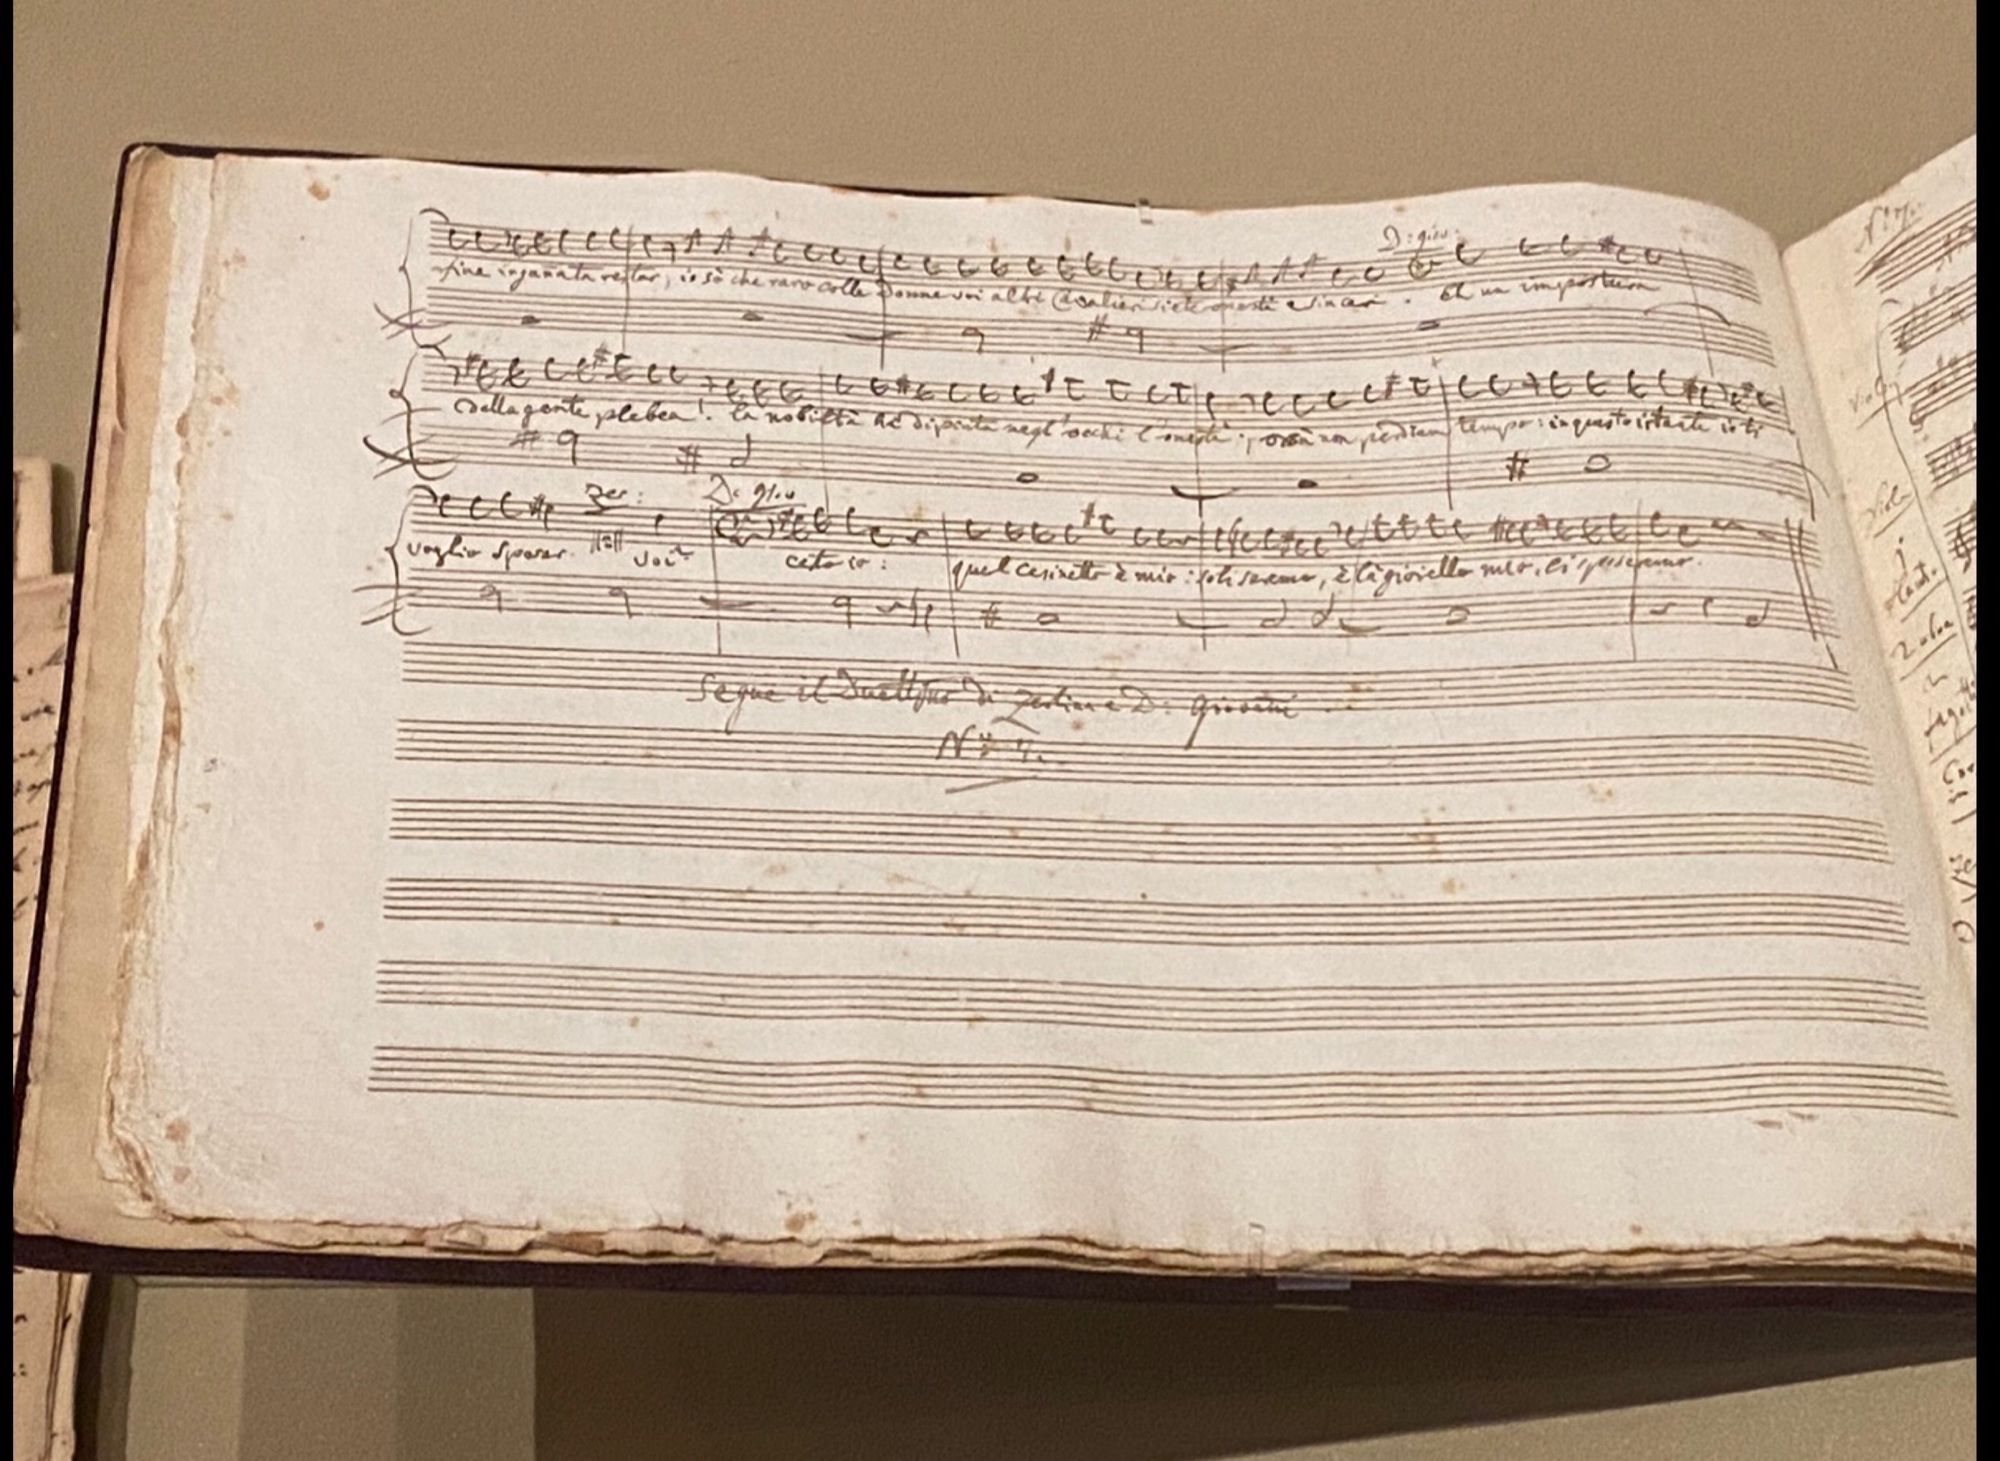 D: giov:
fine ingannata restar, io sò che raro colle Donne voi altri Cavalieri siete onesti e sinceri. È un impostura
della gente plebea! la nobiltà hà dipinta negl'occhi l'onestà: orsù non perdiam tempo: in questo istante io ti
Zer: D: giov
voglio sposar. voi? certo io: quel casinetto è mio: soli saremo, e là gioiello mio, ci sposeremo.
Segue il Duettino di Zerlina e D: Giovanni
N:º 7.
N:º 7.
Viol:
2 oboe